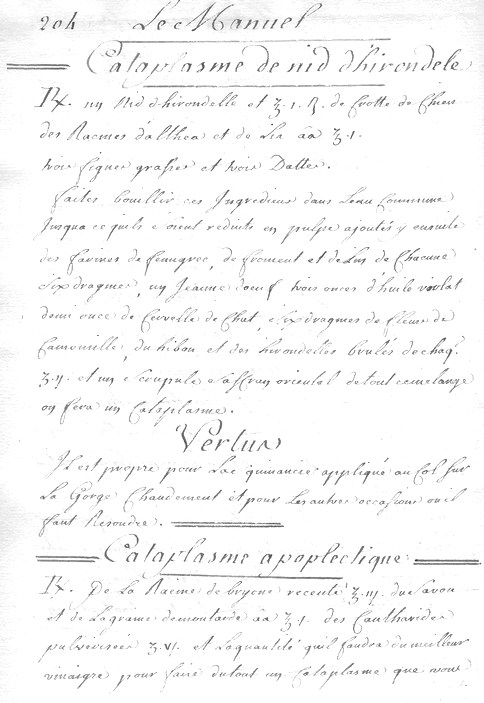 204 Le Manuel
Cataplasme de nid dhirondele
Rx. un Nid d'hirondelle et ʒ.1.ß. de Crotte de Chien
des Racines d'althea et de Lis āā ʒ.1.
trois figues grasses et trois Datte.
faites bouillir ces Ingrediens dans Leau Commune
Jusqua ce quils soient reduits en pulpe ajoutés y ensuite
des farines de fenugrec, de froment et de Lin de Chacune
Six dragmes, un Jeaune doeuf trois onces d'huile violat
demi once de Cervelle de Chat, Six dragmes de fleurs de
Camomille, du hibou et des hirondelles brulés de chaq.
ʒ.ij. et un Scrupule Saffran oriental de tout ce melange
on fera un Cataplasme.
Vertus
Il est propre pour La quinancie appliqué au Col sur
La Gorge Chaudement et pour les autres occasions ou il
faut Resoudre.
Cataplasme apoplectique
Rx. De La Racine de bryone recente ʒ.iij. du Savon
et de La graine de moutarde āā ʒ.1. des Cantharides
pulverisees ʒ.vi. et La quantité qu'il faudra du meilleur
vinaigre pour faire du tout un Cataplasme que vous